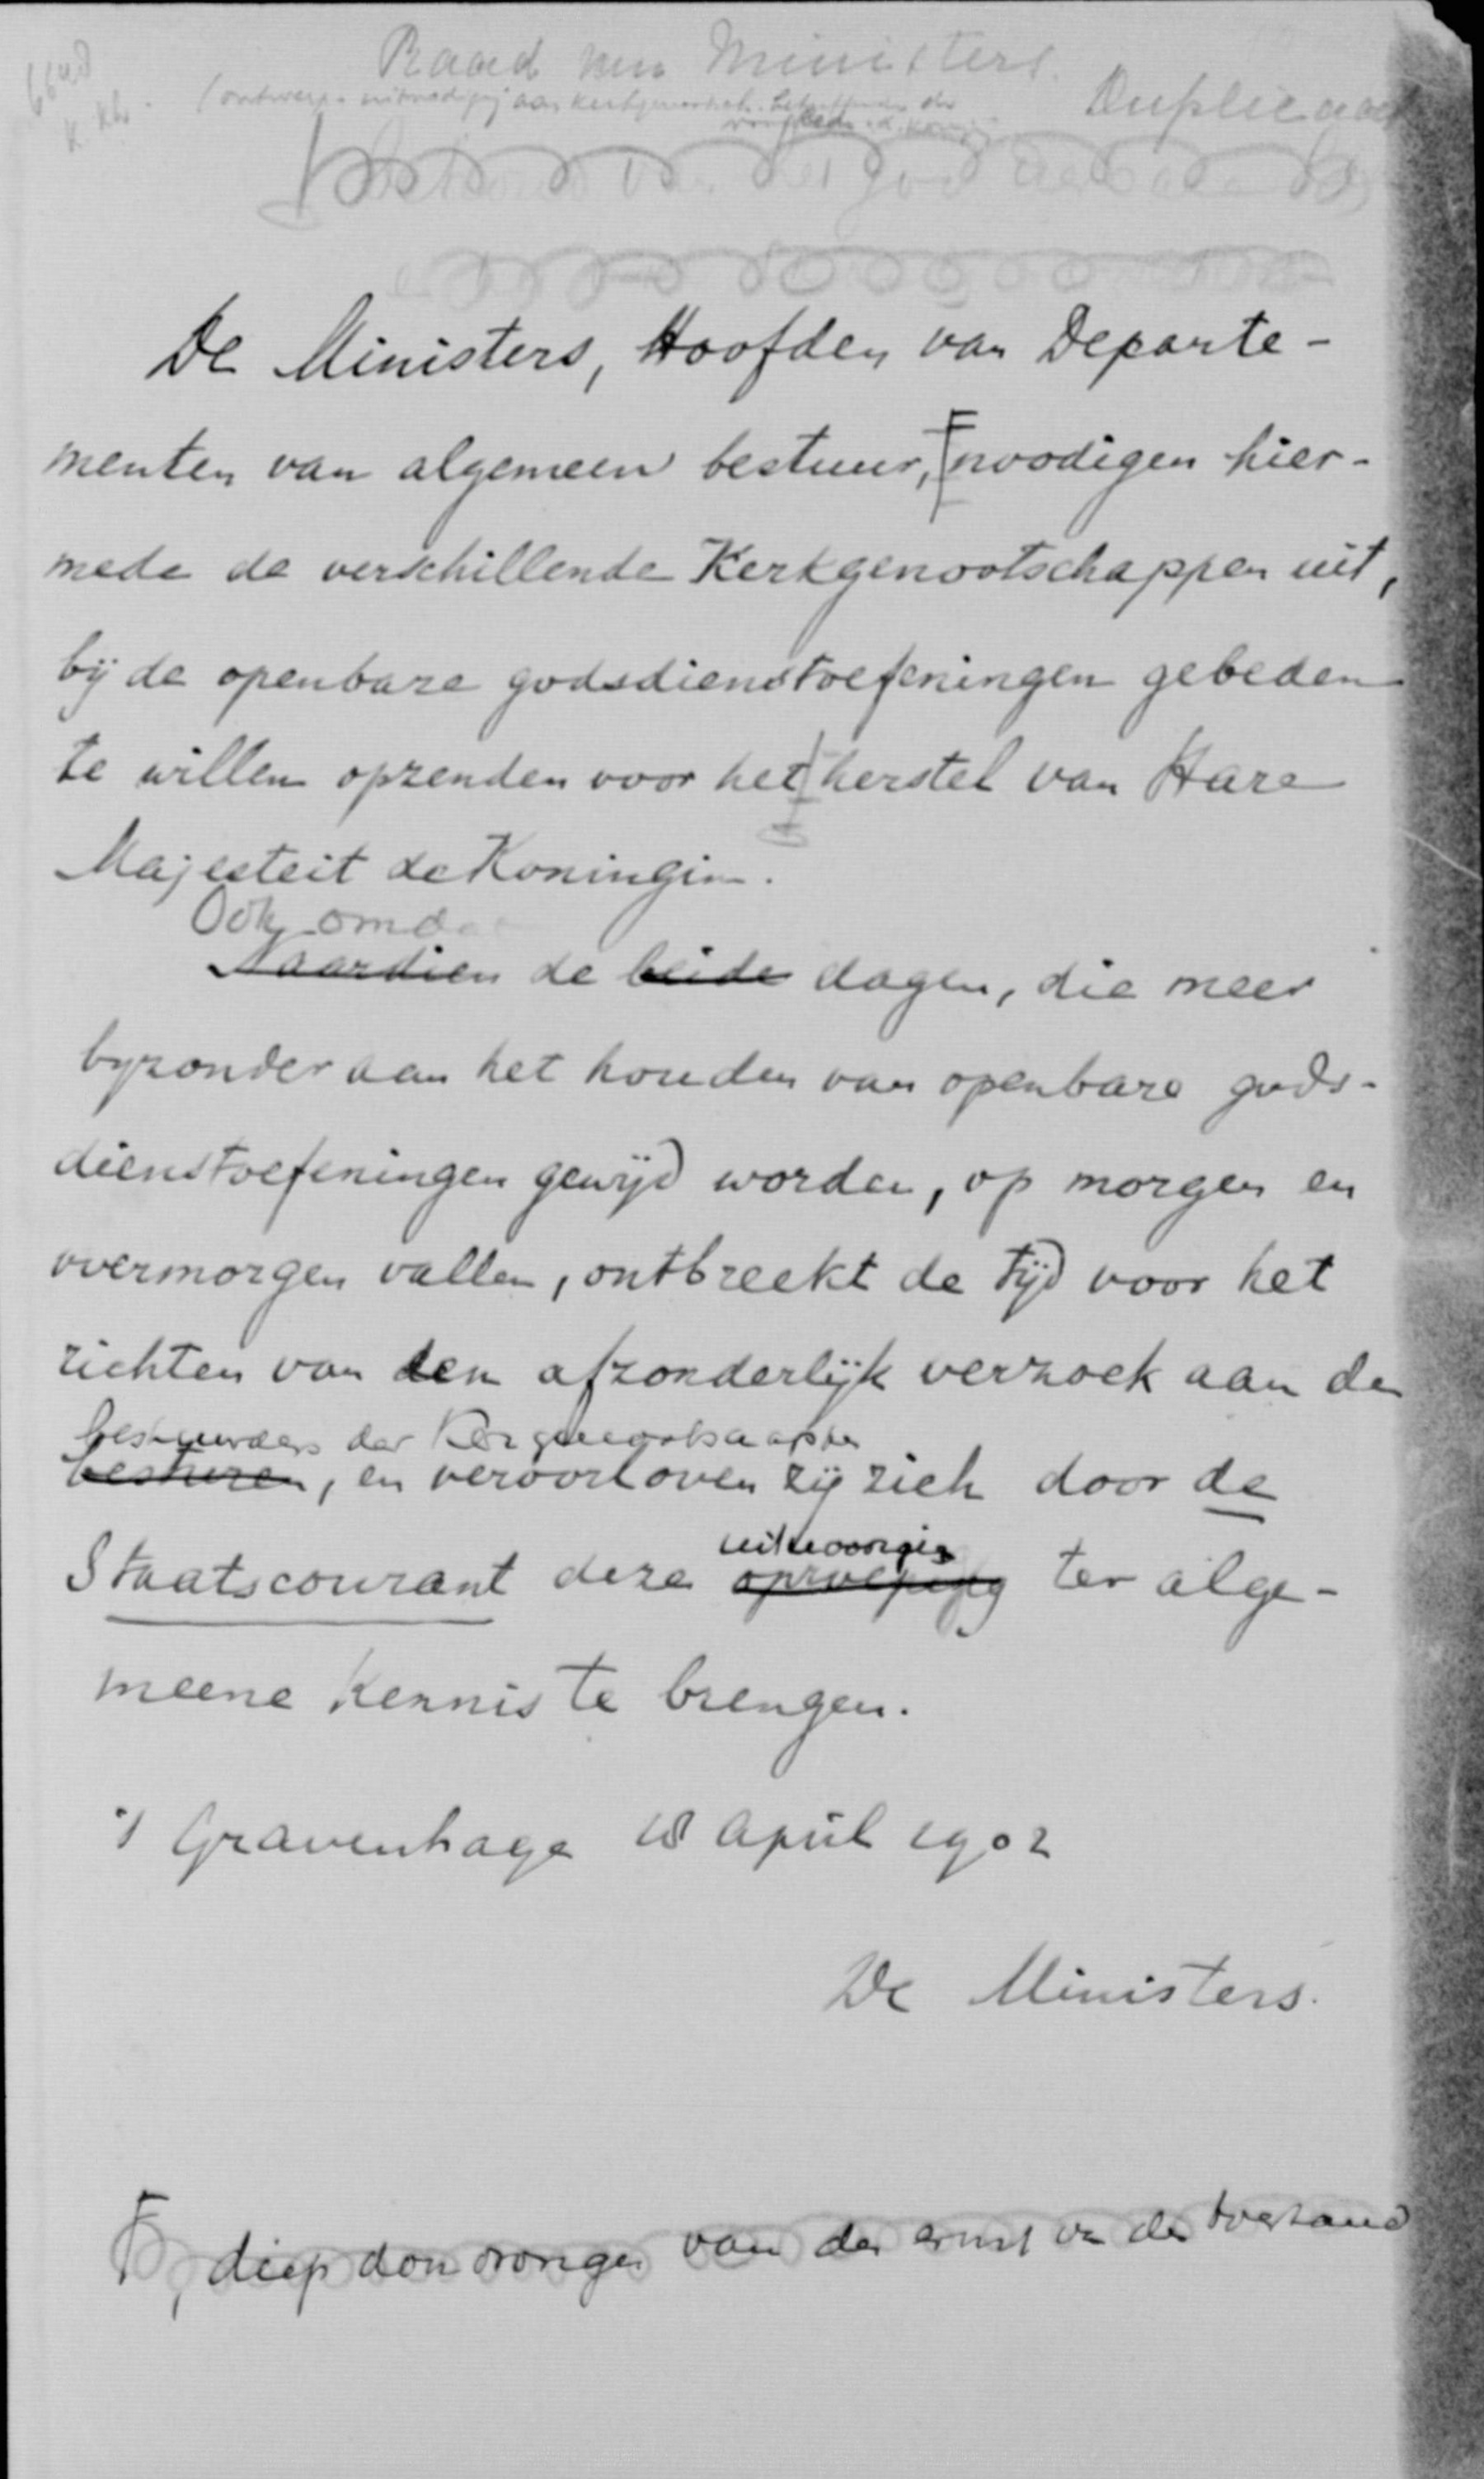 Raad van Ministers.
Duplicaat
De Ministers, Hoofden van Departe-
menten van algemeen bestuur, noodigen hier-
mede de verschillende Kerkgenootschappen uit,
bij de openbare godsdienstoefeningen gebeden
te willen opzenden voor het herstel van Hare
Majesteit de Koningin.
Ook omdat
Naardien de beide dagen, die meer
byzonder aan het houden van openbare gods-
dienstoefeningen gewijd worden, op morgen en
overmorgen vallen, ontbreekt de tijd voor het
richten van een afzonderlijk verzoek aan de
bestuurders der Kergenootschappen
besturen, en veroorloven zij zich door de
Staatscourant deze oproeping ter alge-
meene kennis te brengen.
's Gravenhage 18 April 1902
De Ministers.
F, diep doordrongen van den ernst van den toestand